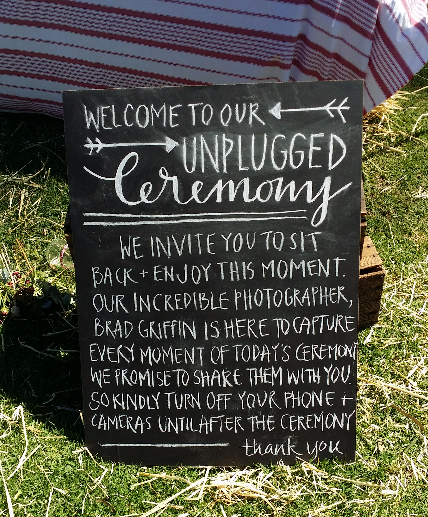 WELCOME TO OUR
UNPLUGGED
Ceremony
WE INVITE YOU TO SIT
BACK + ENJOY THIS MOMENT.
OUR INCREDIBLE PHOTOGRAPHER,
BRAD GRIFFIN IS HERE TO CAPTURE
EVERY MOMENT OF TODAY'S CEREMONY
WE PROMISE TO SHARE THEM WITH YOU.
SO KINDLY TURN OFF YOUR PHONE +
CAMERAS UNTIL AFTER THE CEREMONY
thank you